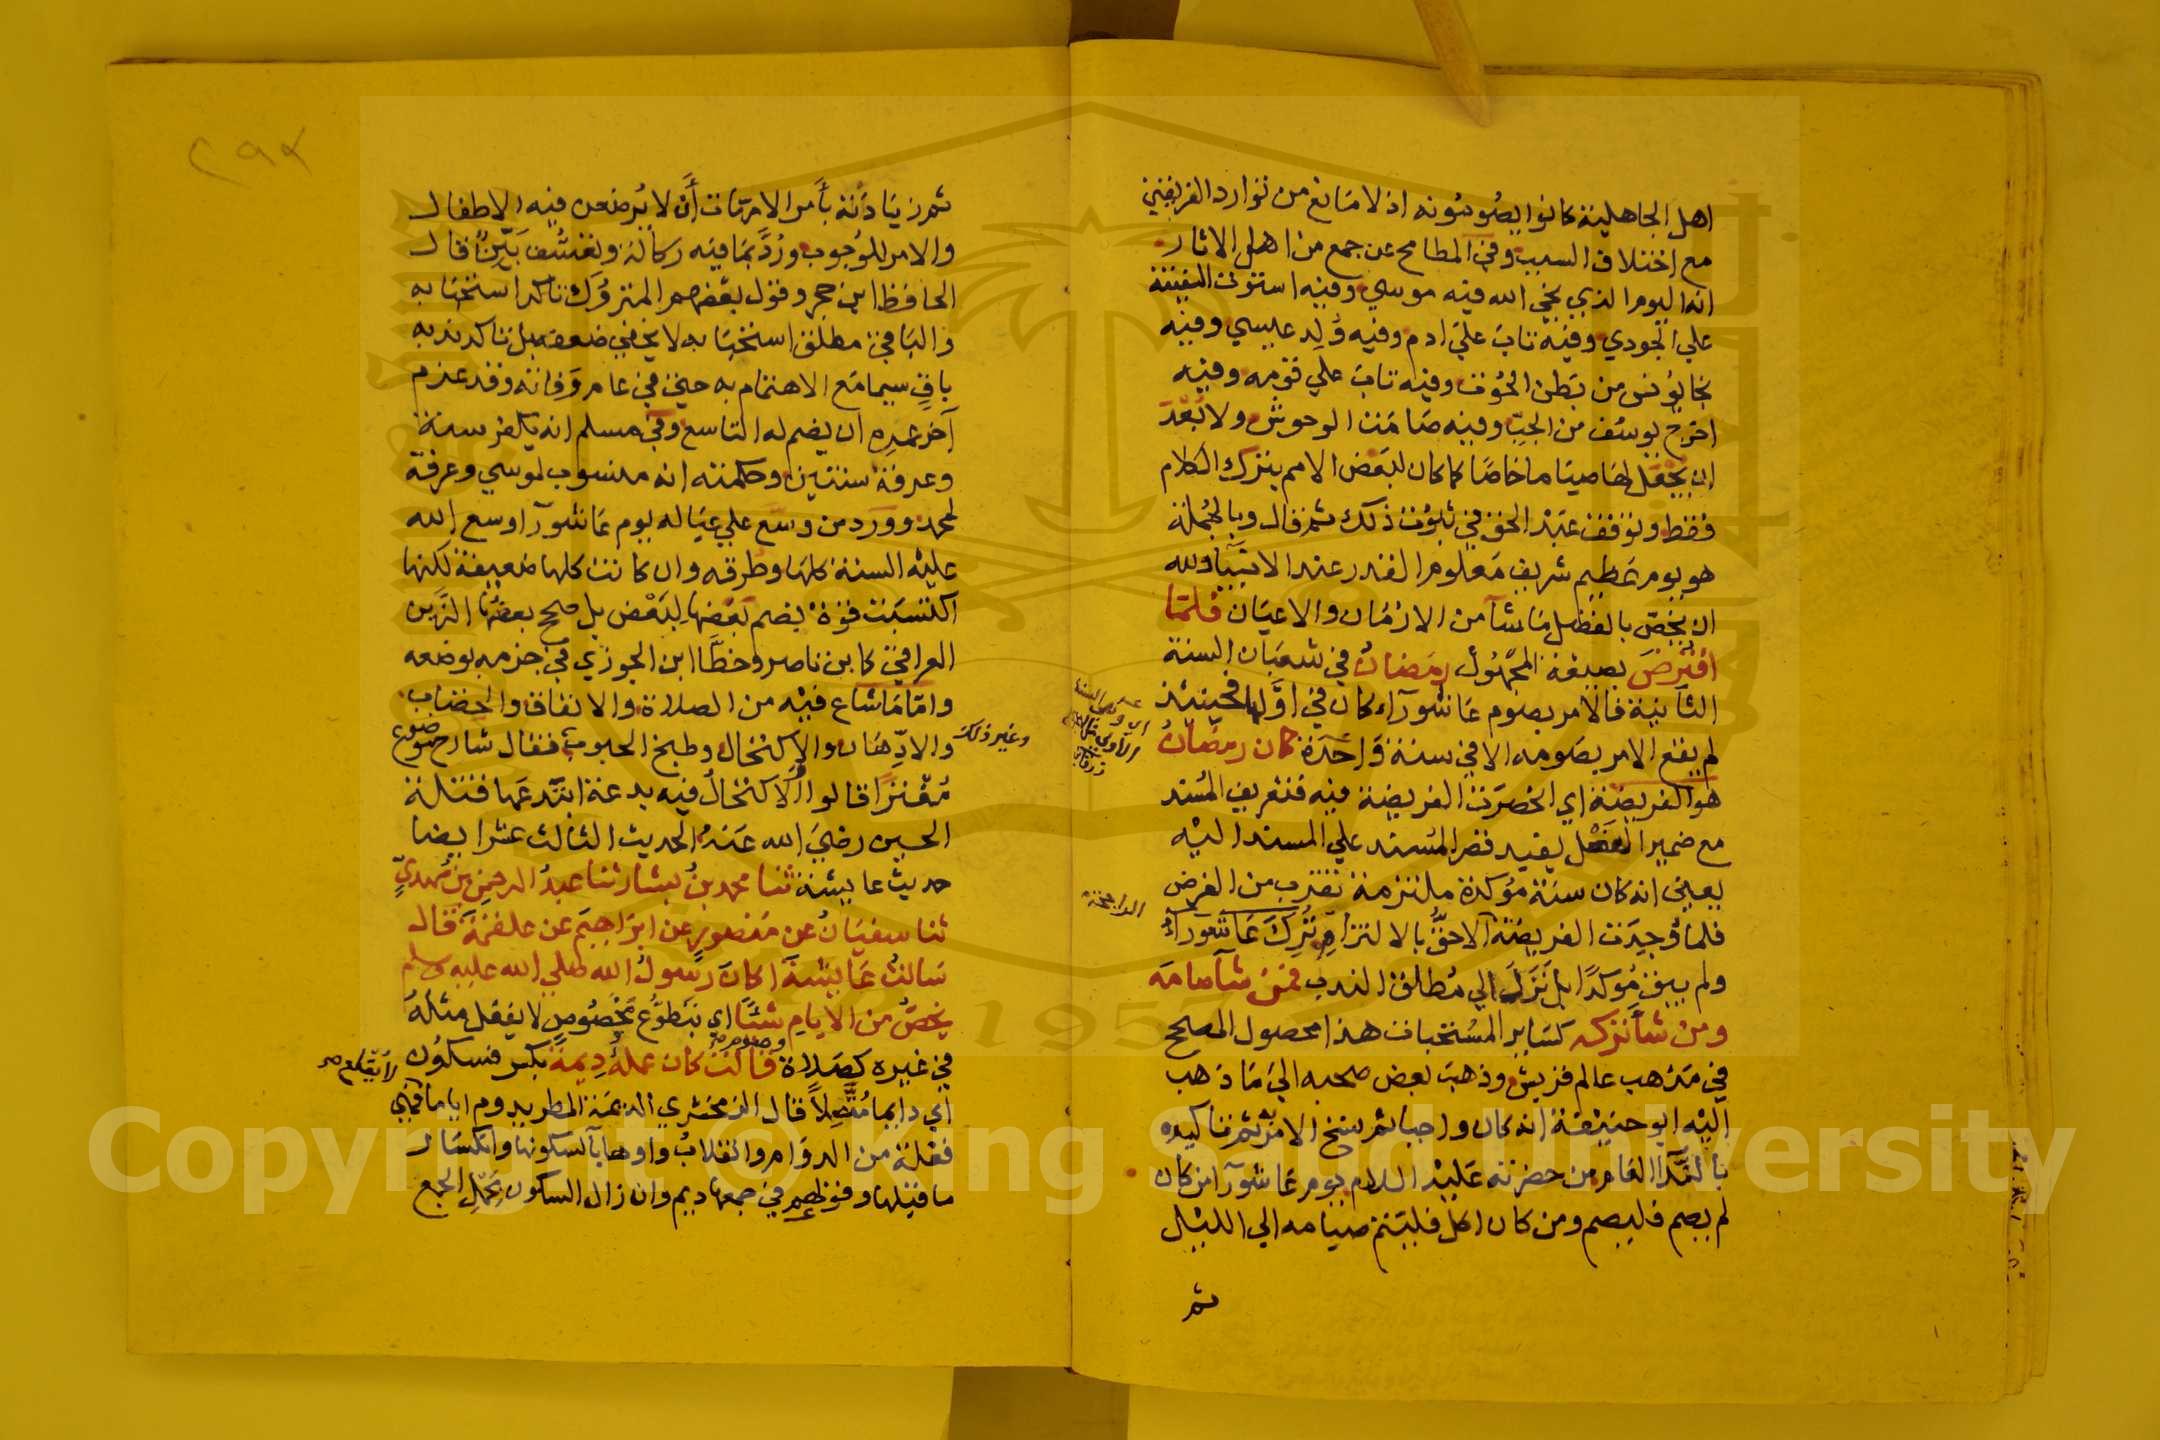 اهل الجاهلية كانوا يصومونه اذ لا مانع من توارد الفريقين
مع اختلاف السبب وفي المطامح عن جمع من اهل الاثار
انه اليوم الذي نجي الله فيه موسي وفيه استوت السفينة
علي الجودي وفيه تاب علي ادم وفيه وُلِد عيسي وفيه
نجا يونس من بطن الحوت وفيه تاب علي قومه وفيه
اخرج يوسف من الجبّ وفيه صامت الوحوش ولا بُعْدَ
ان يجعل لها صياما خاصا كما كان لبعض الامم بترك الكلام
فقط وتوقف عبد الحق في ثبوت ذلك ثم قال وبالجملة
هو يوم عظيم شريف معلوم القدر عند الانبيا ولله
ان يخصّ بالفضل ما شآ من الازمان والاعيان فلما
افتُرضَ بصيغة المجهول رمضانُ في شعبان السنة
الثانية فالامر بصوم عاشورآء كان في اوّلها فحينئذ
لم يقع الامر بصومه الا في سنة واحدة كان رمضانُ
هو الفريضة اي انحصرت الفريضة فيه فتعريف المُسند
مع ضمير الفصْل يفيد قصر المُسند علي المسند اليه
يعني انه كان سنة مؤكدة ملتزمة تقترب من الفرض
فلما وُجِدَت الفريضة الاحقُّ بالالتزام تُرِكَ عاشورآءُ
ولم يبق مُوكدًا بل نَزَلَ الي مُطلق الندب فمن شآ صامه
ومن شآ تركه كساير المستحبات هذا محصول المصلح
في مذهب عالم قريش وذهب بعض صحبه الي ما ذهب
اليه ابو حنيفة انه كان واجبا ثم نسخ الامر ثم تاكيده
بالندآ العام من حضرته عليه السلام يوم عاشورآ من كان
لم يصم فليصم ومن كان اكل فليتم صيامه الي الليل
ثم
ثم زيادته بأمر الامهات أن لا يُرضعن فيه الاطفال
والامر للوجوب ورُدّ بما فيه ركاكة وتعسُّف بَيِّنٌ قال
الحافظ ابن حجر وقول بعضهم المتروك تاكد استحبابه
والباقي مطلق استحبابه لا يخفي ضعفه بل تاكد ندبه
باقٍ سيما مع الاهتمام به حتي في عام وفاته وقد عزم
آخر عمره ان يضم له التاسع وفي مسلم انه يكفر سنة
وعرفة سنتين وحكمته انه منسوب لموسي وعرفة
لمحمد وورد من وسّع علي عياله يوم عاشورآ اوسع الله
عليه السنة كلها وطرقه وان كانت كلها ضعيفة لكنها
اكتسبت قوة بضم بعضها لبعض بل صحح بعضها الزين
العراقي كابن ناصر وخطّا ابن الجوزي في جزمه بوضعه
وامّا ما شاع فيه من الصلاة والانفاق والخضاب
والادِّهان والاكتحال وطبخ الحبوب فقال شارح موضوع
وغير ذلك
مُفْترًا قالوا الاكتحالُ فيه بدعة ابتدعها قتلة
الحسين رضي الله عنهُ الحديث الثالث عشر ايضا
حديث عايشة ثنا محمد بنُ بشار ثنا عبدُ الرحمن بن مَهْدِيٍّ
ثنا سفيانُ عن منصورٍ عن ابراهيمَ عن علقمةَ قال
سالتُ عايشةَ اكانَ رسولُ الله صلي الله عليه وسلم
يخصُّ من الايامِ شئًا اي بتطوُّع مخصُوصٍ لا يفعل مثلهُ
في غيره كصلاة وصوم قالت كان عملهُ دِيمةً بكسر فسكون
اي دايما مُتَّصِلًا قال الزمخشري الديمة المطر يدوم اياما فهي
لا يُقلع
فعلة من الدوام وانقلابُ واوها يآ لسكونها وانكسار
ما قبلها وقولهم في جمعها ديم وان زال السكون بحَمْلِ الجمع